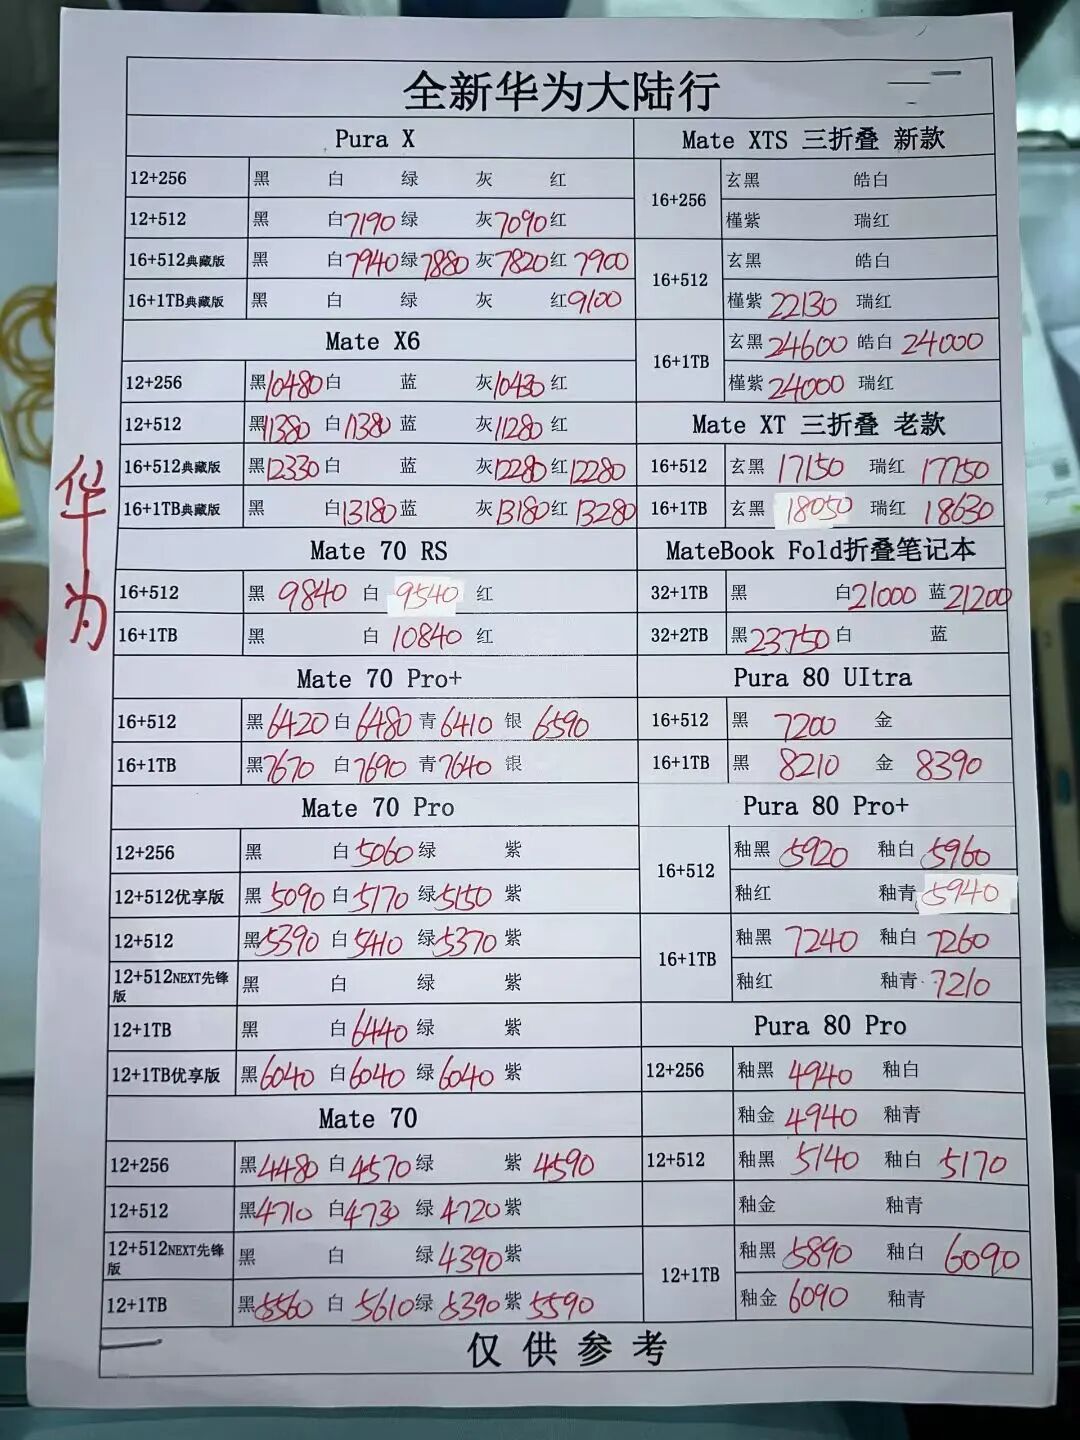 全新华为大陆行
华为
Pura X
12+256 黑 白 绿 灰 红
12+512 黑 白7190 绿 灰7090 红
16+512典藏版 黑 白7940 绿7880 灰7820 红7900
16+1TB典藏版 黑 白 绿 灰 红9100
Mate X6
12+256 黑10480 白 蓝 灰10430 红
12+512 黑11380 白11380 蓝 灰11280 红
16+512典藏版 黑12330 白 蓝 灰12280 红12280
16+1TB典藏版 黑 白13180 蓝 灰13180 红13280
Mate 70 RS
16+512 黑 9840 白 9540 红
16+1TB 黑 白 10840 红
Mate 70 Pro+
16+512 黑6420 白6480 青6410 银 6590
16+1TB 黑7670 白7690 青7640 银
Mate 70 Pro
12+256 黑 白5060 绿 紫
12+512优享版 黑5090 白5170 绿5150 紫
12+512 黑5390 白5410 绿5370 紫
12+512NEXT先锋版 黑 白 绿 紫
12+1TB 黑 白6440 绿 紫
12+1TB优享版 黑6040 白6040 绿6040 紫
Mate 70
12+256 黑4480 白4570 绿 紫4590
12+512 黑4710 白4730 绿4720 紫
12+512NEXT先锋版 黑 白 绿4390 紫
12+1TB 黑5560 白 5610 绿5390 紫5590
Mate XTS 三折叠 新款
16+256 玄黑 皓白
槿紫 瑞红
16+512 玄黑 皓白
槿紫 22130 瑞红
16+1TB 玄黑24600 皓白 24000
槿紫24000 瑞红
Mate XT 三折叠 老款
16+512 玄黑 17150 瑞红 17750
16+1TB 玄黑 18050 瑞红 18630
MateBook Fold折叠笔记本
32+1TB 黑 白21000 蓝21200
32+2TB 黑23750 白 蓝
Pura 80 UItra
16+512 黑 7200 金
16+1TB 黑 8210 金 8390
Pura 80 Pro+
16+512 釉黑 5920 釉白 5960
釉红 釉青 5940
16+1TB 釉黑 7240 釉白 7260
釉红 釉青 7210
Pura 80 Pro
12+256 釉黑 4940 釉白
釉金 4940 釉青
12+512 釉黑 5140 釉白 5170
釉金 釉青
12+1TB 釉黑 5890 釉白 6090
釉金 6090 釉青
仅供参考